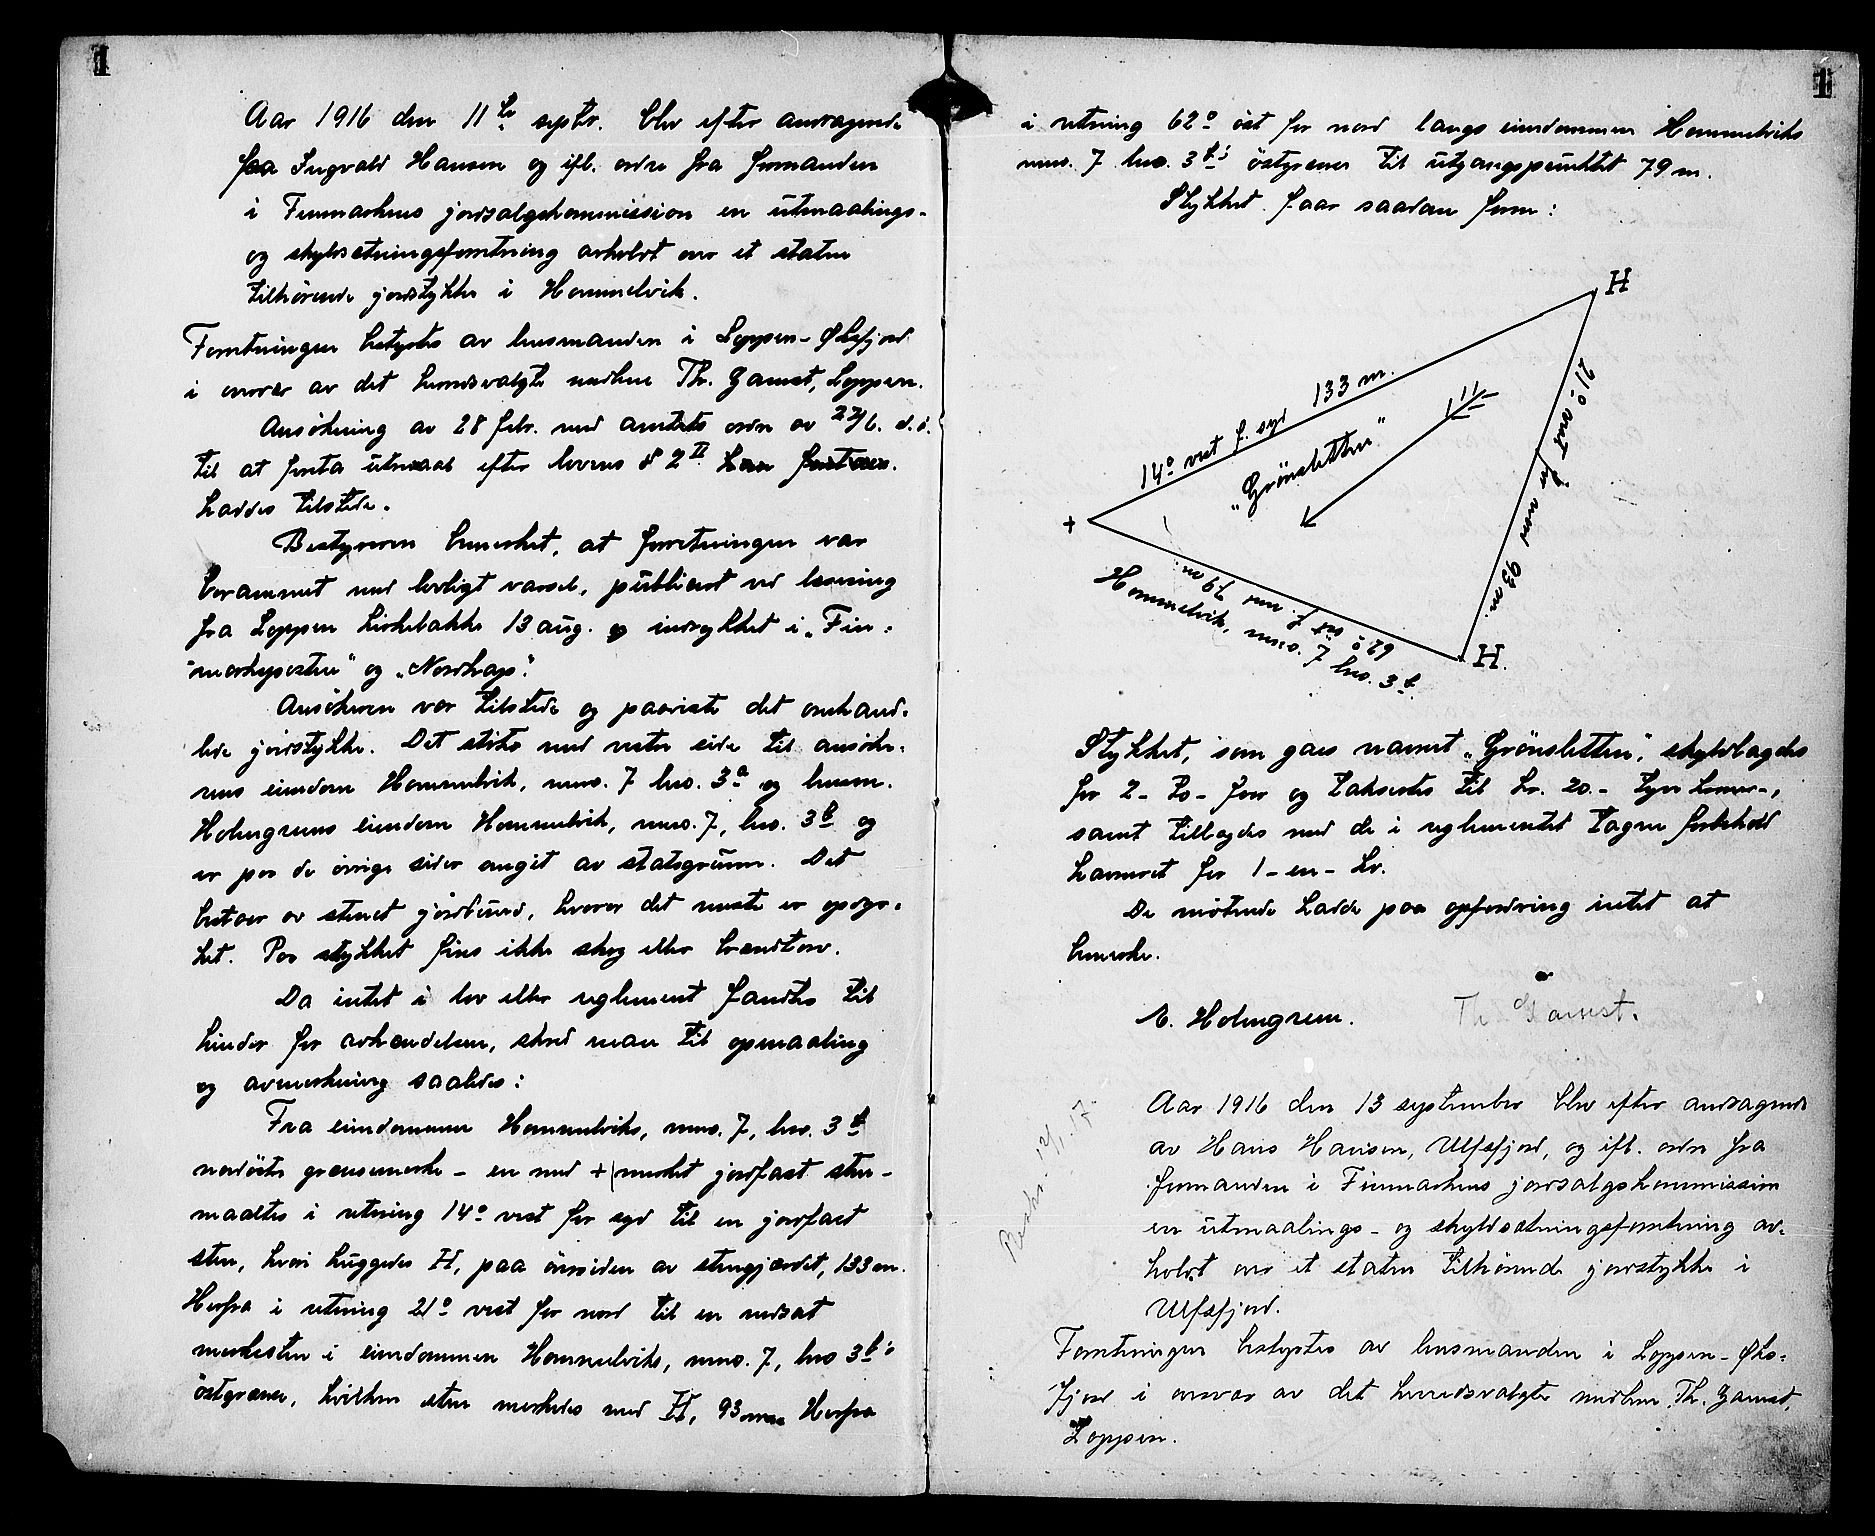 1
Aar 1916 den 11te septbr. blev efter andragende
fra Ingvald Hansen og ifl. ordre fra formanden
i Finmarkens jordsalgskommission en utmaalings-
og skyldsætningsforretning avholdt over et staten
tilhørende jordstykke i Hommelvik.
Forretningen bestyrtes av lensmanden i Loppen-Øksfjord
i nærvær av det herredsvalgte medlem Th. Gamst, Loppen.
Ansökning av 28 febr. med amtets ordre av 22/6. d. å.
til at foreta utmaal efter lovens § 2 II
haddes tilstede.
Bestyreren bemerket, at forretningen var
berammet med lovligt varsel, publicert ved læsning
fra Loppen kirkebakke 13 aug. og indrykket i „Fin-
marksposten" og „Nordkap".
Ansökeren var tilstede og paaviste det omhand-
lede jordstykke. Det støter med vestre side til ansöke-
rens eiendom Hommelvik, mno. 7 lno. 3a og lensm.
Holmgrens eiendom Hommelvik, mno. 7, lno. 3b og
er paa de övrige sider omgit av statsgrund. Det
bestaar av stenet jordbund, hvorav det meste er opdyr-
ket. Paa stykket fins ikke skog eller brændtorv.
Da intet i lov eller reglement fandtes til
hinder for avhændelsen, skred man til opmaaling
og avmerkning saaledes:
Fra eiendommen Hommelviks, mno. 7, lno. 3b
nordöstre grænsemerke - en med + merket jordfast sten -
maaltes i retning 14° vest for syd til en jordfast
sten, hvori huggedes H, paa övresiden av stengjærdet, 133 m.
Herfra i retning 21° vest for nord til en nedsat
merkesten i eiendommen Hommelviks, mno. 7, lno 3b's
östgrænse, hvilken sten merkedes med H, 93 m. Herfra
1
i retning 62° öst for nord langs eiendommen Hommelviks
mno. 7 lno. 3b's östgrense til utgangspunktet 79 m.
Stykket faar saadan form:
H
14° vest f. syd 133 m.
21° vest for nord 93 m.
„Grönsletten"
+
62° öst f. nord 79 m.
Hommelvik, mno. 7 lno. 3b.
H.
Stykket, som gaes navnet „Grönsletten", skyldlagdes
for 2 - to - öre og takseres til kr. 20.- tyve kroner-,
samt tillagdes med de i reglementet tagne forbehold
havneret for 1 - en - ko.
De møtende hadde paa opfordring intet at
bemerke.
A. Holmgren. Th Gamst.
Aar 1916 den 13 september blev efter andragende
av Hans Hansen, Ulfsfjord, og ifl. ordre fra
formanden i Finmarkens jordsalgskommission
en utmaalings- og skyldsætningsforretning av-
holdt over et staten tilhørende jordstykke i
Ulfsfjord.
Forretningen bestyrtes av lensmanden i Loppen-Øks-
fjord i nærvær av det herredsvalgte medlem Th. Gamst,
Loppen.